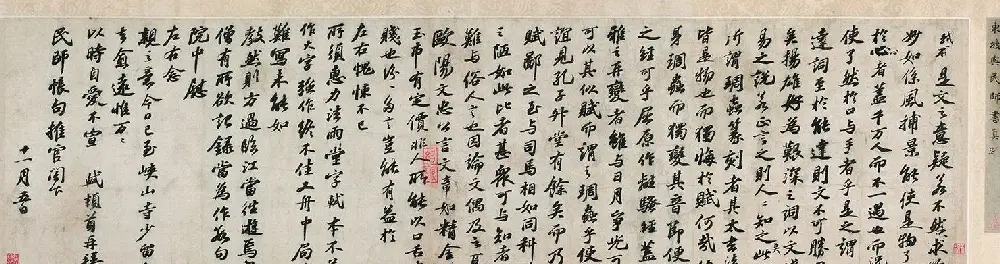 是文之意疑若不然求
妙如係風捕景能使是物了
於心者蓋千萬人而不一遇也而況
使了然於口與手者乎是之謂
達詞至於能達則文不可勝
矣揚雄好為艱深之詞以文
易之說若正言之則人人知之此
所謂琱蟲篆刻者其太玄法
皆是物也而獨悔於賦何哉終
身琱蟲而獨變其音節便
之經可乎屈原作離騷經蓋
雅之再變者雖與日月爭光可
可以其似賦而謂之琱蟲乎使
誼見孔子升堂有餘矣而乃
賦鄙之至與司馬相如同科
之陋如此比者甚衆可與知者
難與俗人言也因論文偶及之耳
歐陽文忠公言文章如精金
玉市有定價非人所能以口舌
賤也紛紛多言豈能有益於
左右愧悚不已
所須惠力法雨堂字軾本不
作大字強作終不佳又舟中局
難寫未能如
教然軾方過臨江當往遊焉
僧有所欲記錄當為作數句
院中慰
左右念
親之意今日已至峽山寺少留
去愈遠惟万万
以時自愛不宣 軾頓首再拜
民師帳句推官閣下
十一月五日